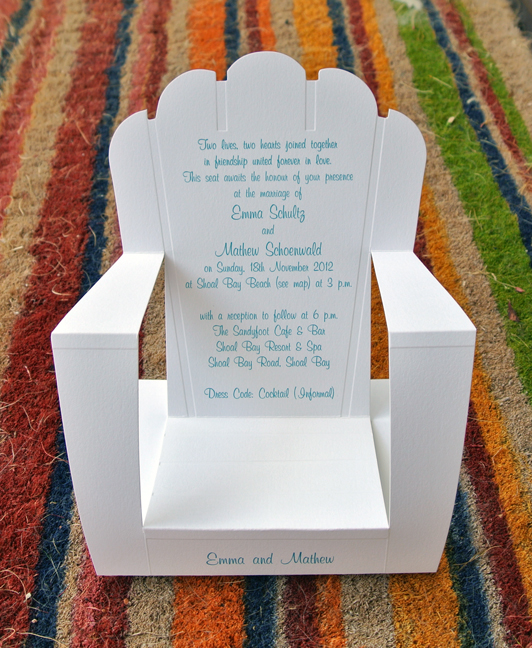 Two lives, two hearts joined together
in friendship united forever in love.
This seat awaits the honour of your presence
at the marriage of
Emma Schultz
and
Mathew Schoenwald
on Sunday, 18th November 2012
at Shoal Bay Beach (see map) at 3 p.m.
with a reception to follow at 6 p.m.
The Sandyfoot Cafe & Bar
Shoal Bay Resort & Spa
Shoal Bay Road, Shoal Bay
Dress Code: Cocktail (Informal)
Emma and Mathew